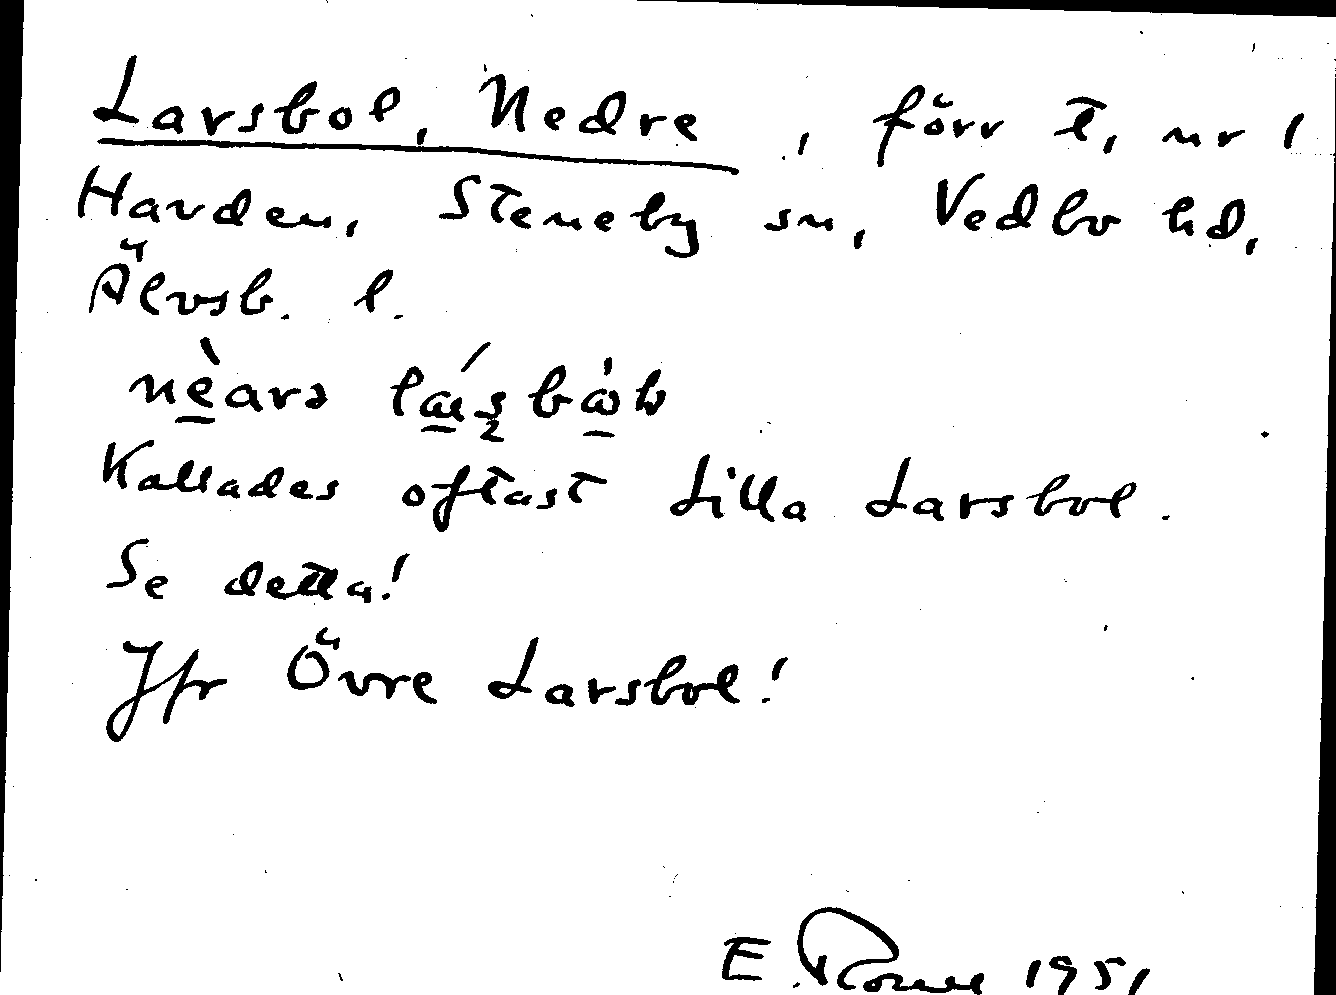 Larsbol, Nedre, förr t, nr 1
Harden, Steneby sn, Vedbo hd,
Älvsb. l.
Kallades oftast Lilla Larsbol.
Se detta!
Jfr Övre Larsbol!
E. 1951